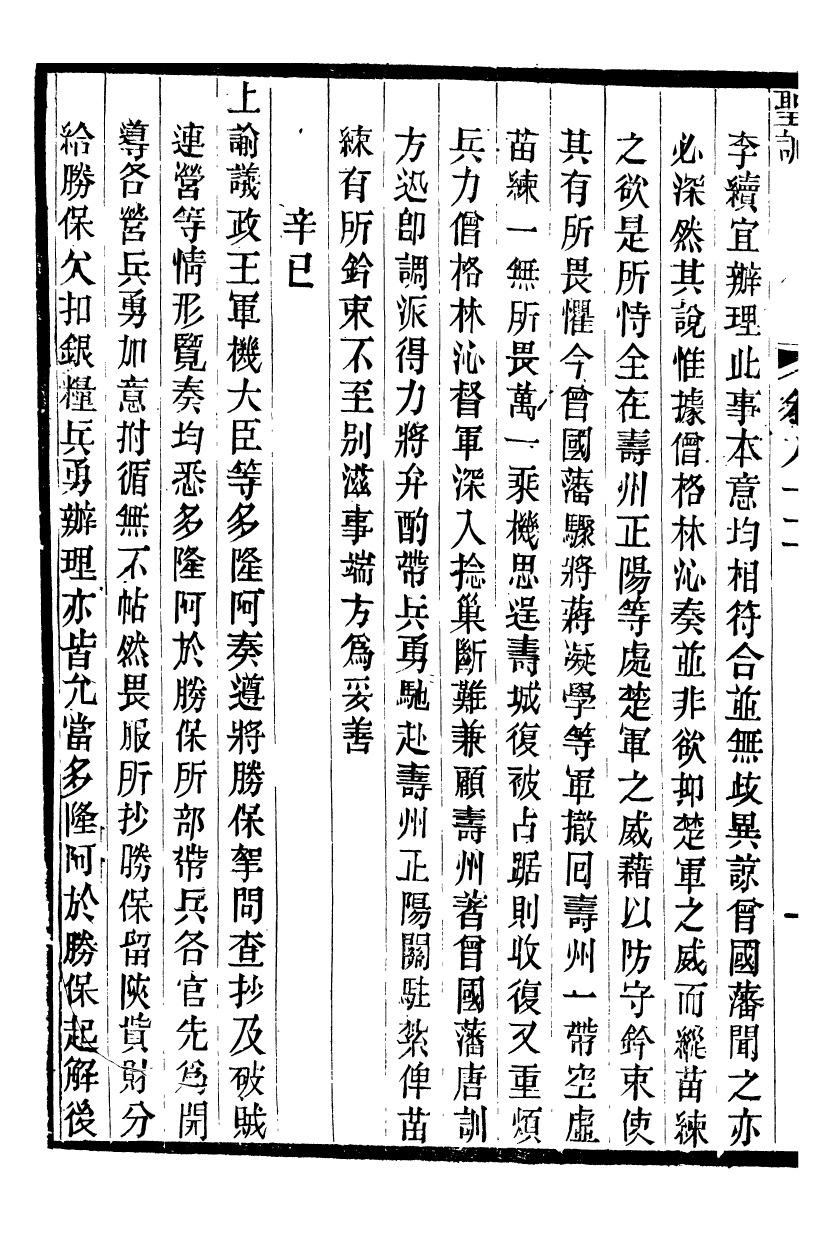 聖訓 卷八十二 一
李續宜辦理此事本意均相符合並無歧異諒曾國藩聞之亦
必深然其說惟據僧格林沁奏並非欲抑楚軍之威而縱苗練
之欲是所恃全在壽州正陽等處楚軍之威藉以防守鈐束使
其有所畏懼今曾國藩驟將蔣凝學等軍撤回壽州一帶空虛
苗練一無所畏萬一乘機思逞壽城復被占踞則收復又重煩
兵力僧格林沁督軍深入捻巢斷難兼顧壽州着曾國藩唐訓
方迅卽調派得力將弁酌帶兵勇馳赴壽州正陽關駐紮俾苗
練有所鈐束不至別滋事端方爲妥善
辛巳
上諭議政王軍機大臣等多隆阿奏遵將勝保拏問查抄及破賊
連營等情形覽奏均悉多隆阿於勝保所部帶兵各官先爲開
導各營兵勇加意拊循無不帖然畏服所抄勝保留陝貲財分
給勝保欠扣銀糧兵勇辦理亦皆允當多隆阿於勝保起解後